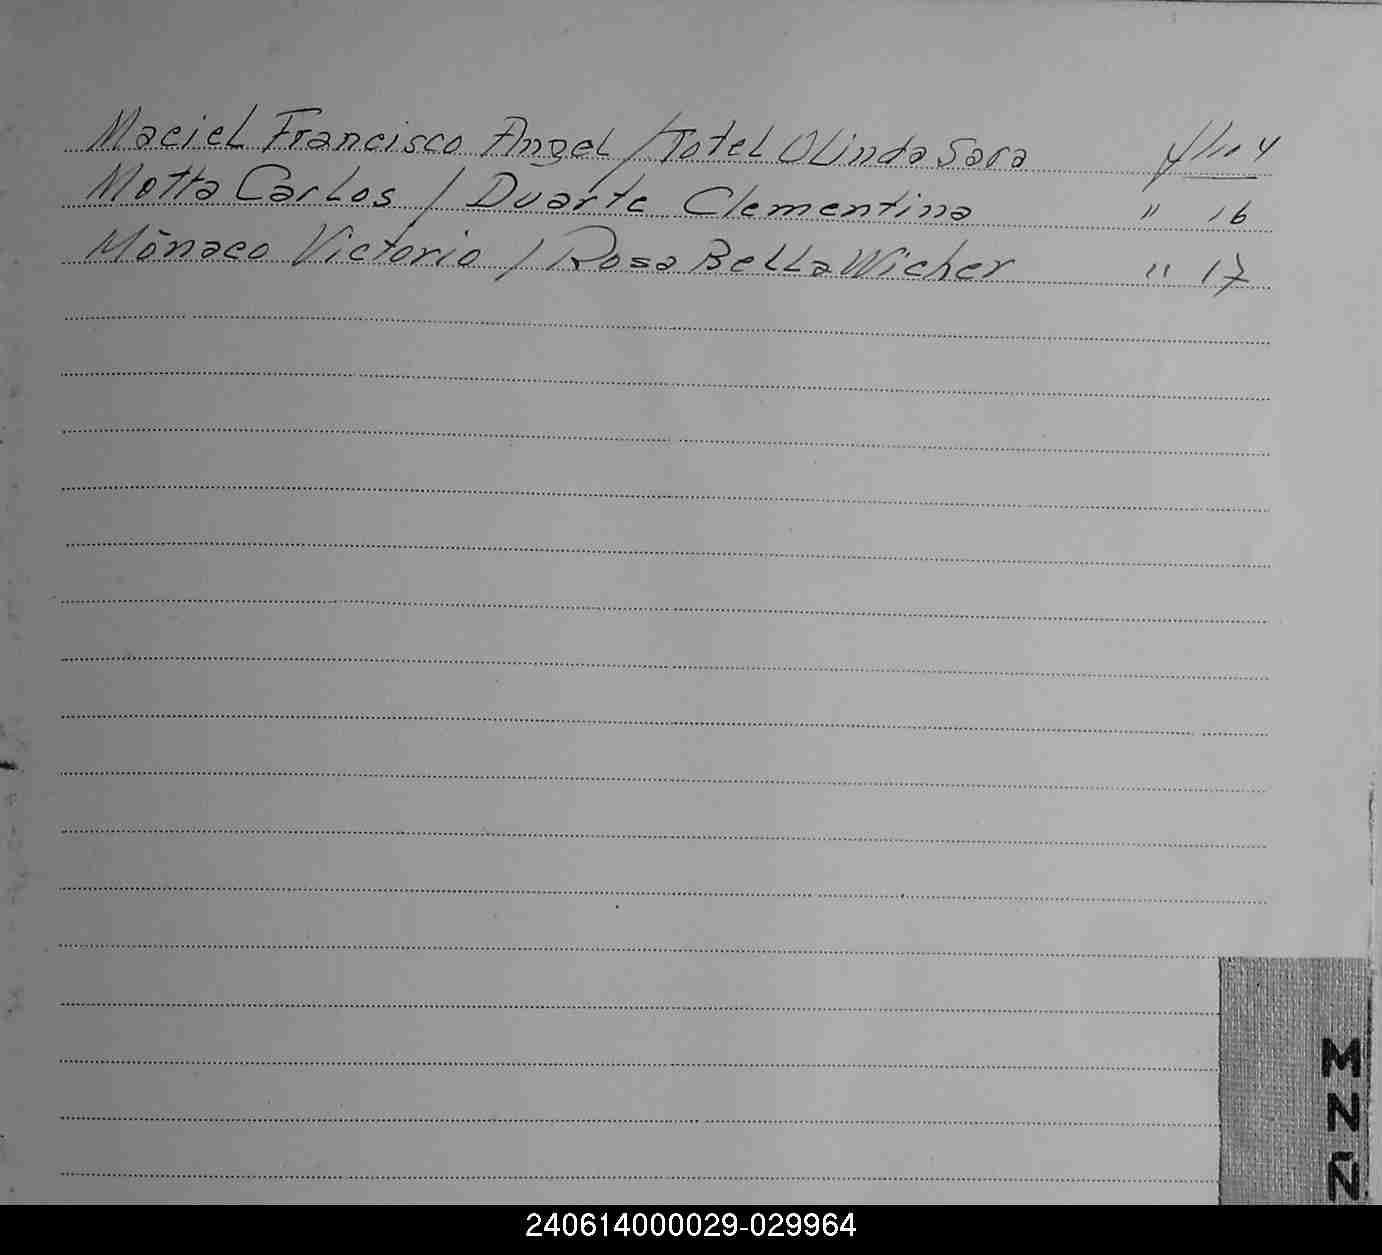 Maciel Francisco Angel / Totel Olinda Sara
Motta Carlos / Duarte Clementina " 16
Mónaco Victorio / Rosa Bella Wicher " 17
M
N
Ñ
240614000029-029964